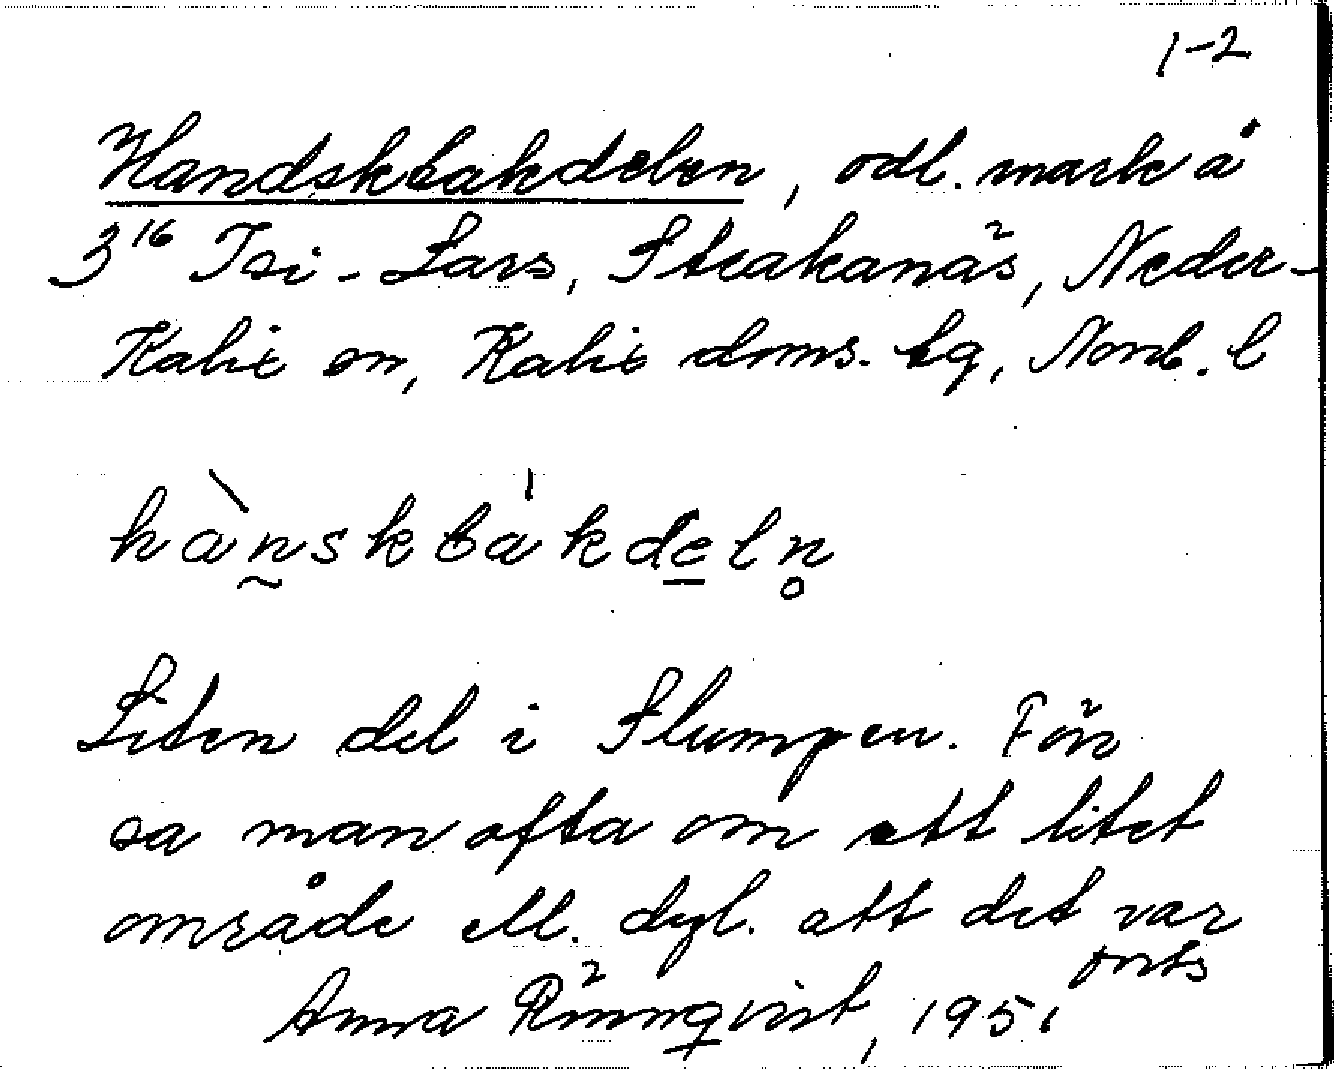 1-2
Handskbakdelen, odl. mark å
3¹⁶ Isi-Lars, Stråkanäs, Neder-
Kalix sn, Kalix doms. tg, Norrb. l
hànskbákdeln̥
Liten del i Slumpen. Förr
sa man ofta om ett litet
område ell. dyl. att det var
forts
Anna Rönnqvist, 1951